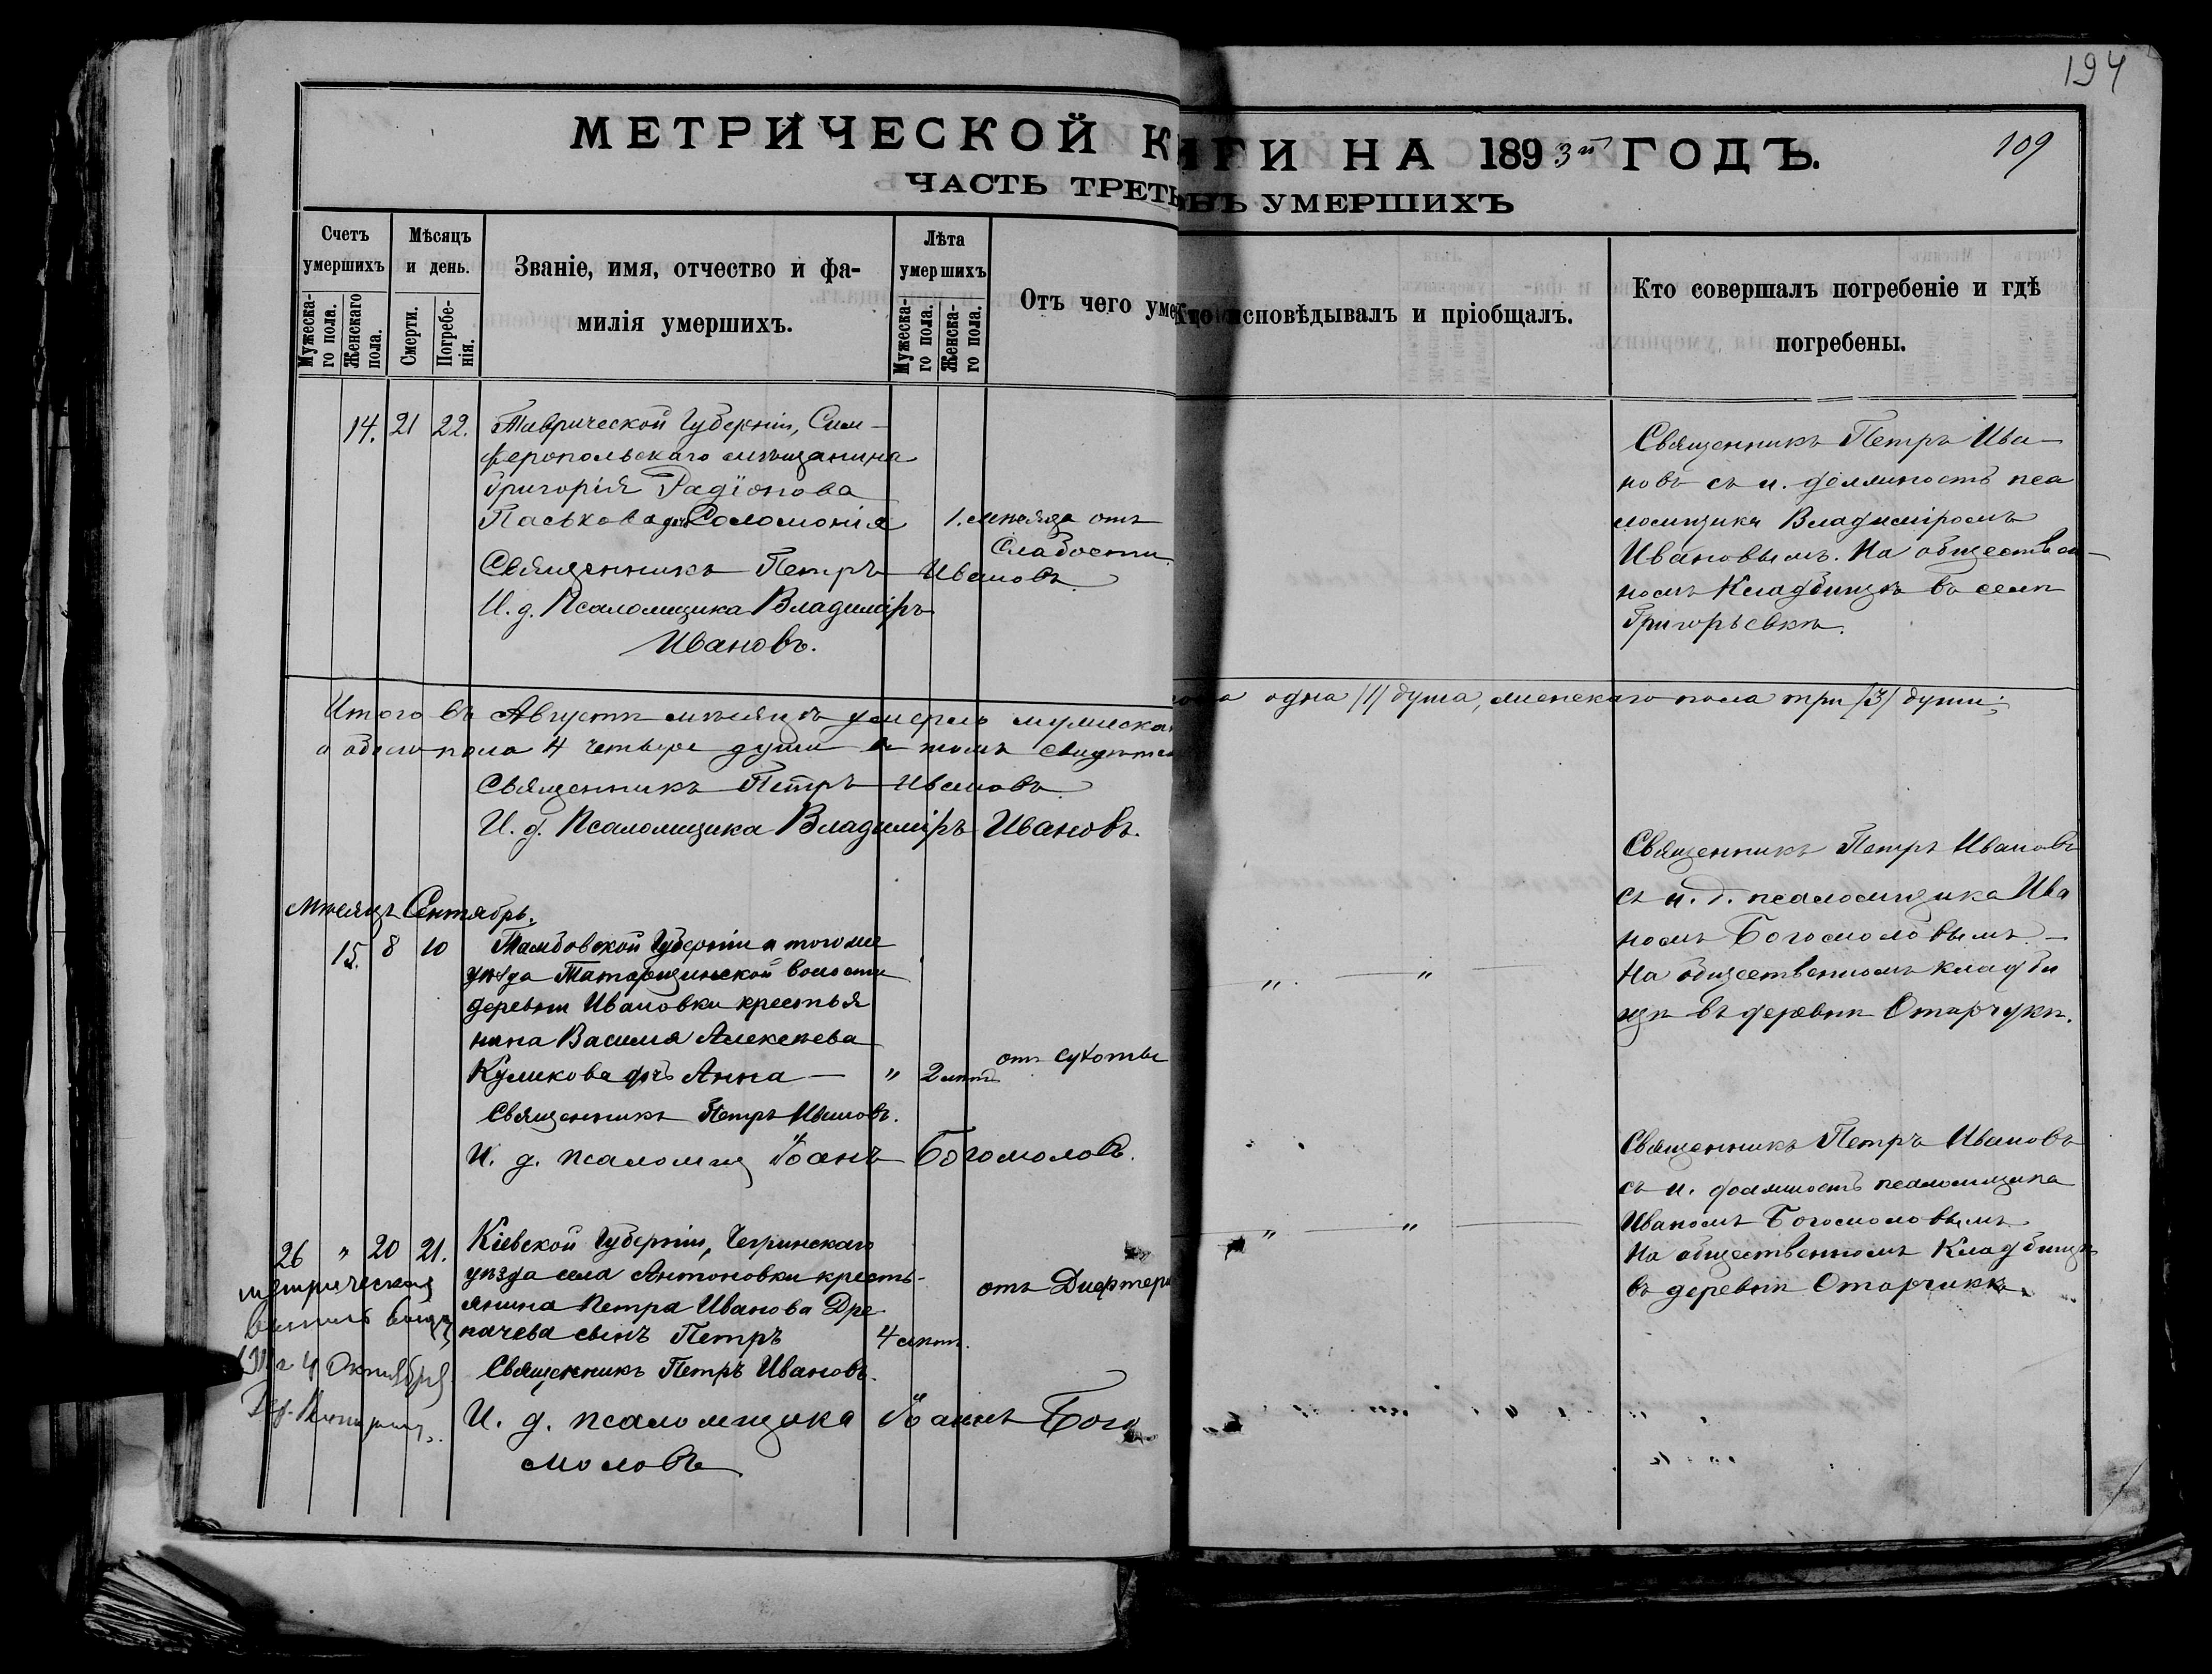 194
МЕТРИЧЕСКОЙ К ИГИ НА 1893й ГОДЪ.
109
ЧАСТЬ ТРЕТЬ УМЕРШИХЪ
Счетъ умершихъ
Мужеска-го пола.
Женскаго пола.
Мѣсяцъ и день.
Смерти.
Погребе-нія.
Званіе, имя, отчество и фа-
милія умершихъ.
Лѣта умершихъ
Мужеска-го пола.
Женска-го пола.
Отъ чего уме
Кто исповѣдывалъ и пріобщалъ.
Кто совершалъ погребеніе и гдѣ
погребены.
14. 21 22.
Таврической Губерніи, Сим-
феропольскаго мѣщанина
Григорія Радіонова
Паськова дчь Соломонія
1. мѣсяца
отъ
слабости
Священникъ Петръ Ивановъ
И. д. Псаломщика Владиміръ
Ивановъ.
Священникъ Петръ Ива-
новъ съ и. должность пса
ломщика Владиміромъ
Ивановымъ. На обществен-
номъ Кладбищѣ въ селѣ
Григорьевкѣ.
Итого въ Августѣ мѣсяцѣ умерло мужеска
пола одна /1/ душа, женскаго пола три /3/ души;
а обоего пола 4 четыре души в томъ
Священникъ Петръ Ивановъ
И. д. Псаломщика Владиміръ Ивановъ.
Мѣсяцъ Сентябрь.
15. 8 10
Тамбовской Губерніи и того же
уѣзда Татарщинской волости
деревни Ивановки крестья
нина Василія Алексѣева
Куликова дчь Анна — " 2 лѣтъ
отъ сухоты
Священникъ Петръ Ивановъ.
И. д. псаломщ Іоанъ Богомоловъ.
" "
Священникъ Петръ Ивановъ
съ и. д. псаломщика Ива
номъ Богомоловымъ.
На общественномъ кладби
щѣ въ деревнѣ Отарчукѣ.
26 " 20 21.
Кіевской Губерніи, Чегринскаго
уѣзда села Антоновки кресть-
янина Петра Иванова Дре
начева сынъ Петръ
4 лѣтъ.
отъ Дифтери
Священникъ Петръ Ивановъ.
И. д. псаломщика Іоаннъ Бого
моловъ
метрическая
4 Октября
" "
Священникъ Петръ Ивановъ
съ и. должность псаломщика
Иваномъ Богомоловымъ
На общественномъ Кладбищѣ
въ деревнѣ Отарчикѣ.